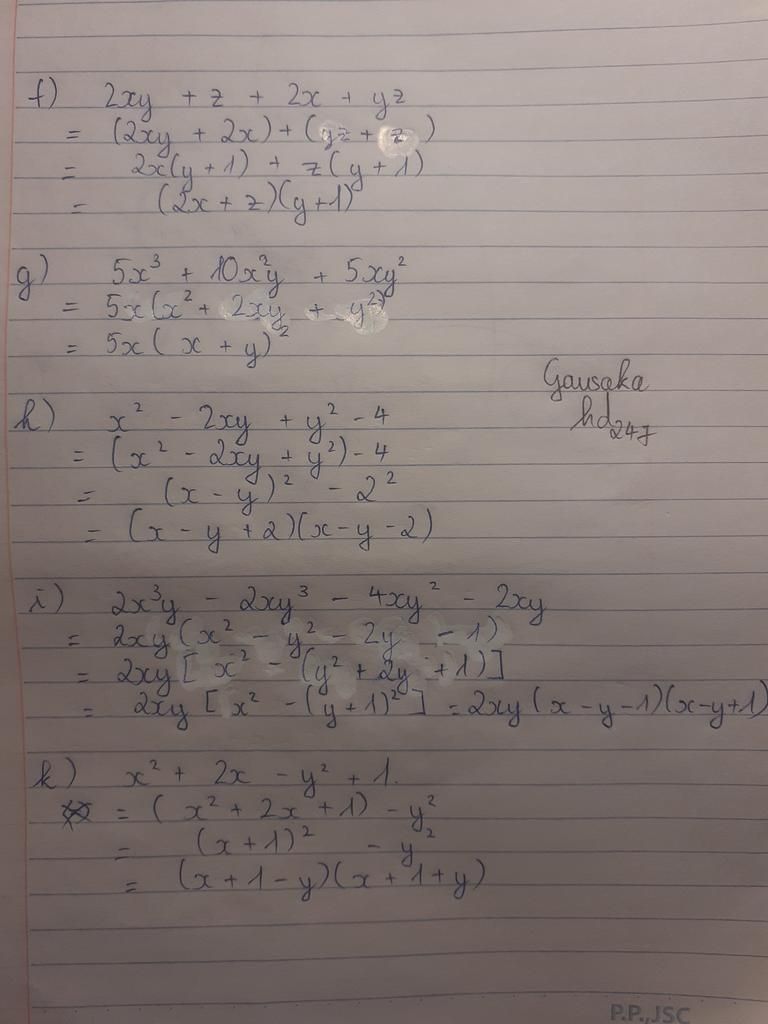 f) 2xy + z + 2x + yz
= (2xy + 2x) + (yz + z)
= 2x(y + 1) + z(y + 1)
= (2x + z)(y+1)
g) 5x³ + 10x²y + 5xy²
= 5x(x² + 2xy + y²)
= 5x(x + y)²
Gausaka
hd247
h) x² - 2xy + y² - 4
= (x² - 2xy + y²) - 4
= (x - y)² - 2²
= (x - y + 2)(x - y - 2)
i) 2x³y - 2xy³ - 4xy² - 2xy
= 2xy(x² - y² - 2y - 1)
= 2xy[x² - (y² + 2y + 1)]
= 2xy[x² - (y + 1)²] = 2xy(x - y - 1)(x - y + 1)
k) x² + 2x - y² + 1.
= (x² + 2x + 1) - y²
= (x + 1)² - y²
= (x + 1 - y)(x + 1 + y)
P.P.,JSC